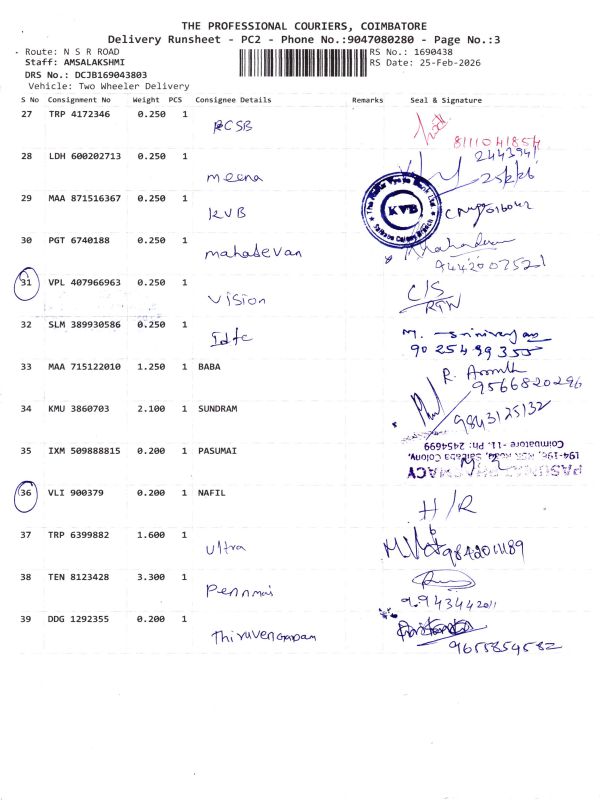 THE PROFESSIONAL COURIERS, COIMBATORE
Delivery Runsheet - PC2 - Phone No.:9047080280 - Page No.:3
Route: N S R ROAD
RS No.: 1690438
Staff: AMSALAKSHMI
RS Date: 25-Feb-2026
DRS No.: DCJB169043803
Vehicle: Two Wheeler Delivery
S No Consignment No Weight PCS Consignee Details Remarks Seal & Signature
27 TRP 4172346 0.250 1
RCSB
8111041854
28 LDH 600202713 0.250 1
244394
meena
25/2/26
29 MAA 871516367 0.250 1
KVB
KVB
30 PGT 6740188 0.250 1
mahadevan
Mahadevan
9442007521
31 VPL 407966963 0.250 1
C/S
Vision
RTN
32 SLM 389930586 0.250 1
Idfc
M. Srinivasan
9025499355
33 MAA 715122010 1.250 1 BABA
R.
9566820296
34 KMU 3860703 2.100 1 SUNDRAM
9843125132
35 IXM 509888815 0.200 1 PASUMAI
PHARMACY
194-196, NSR Road, Saibaba Colony,
Coimbatore - 11. Ph: 2454699
36 VLI 900379 0.200 1 NAFIL
H/R
37 TRP 6399882 1.600 1
Ultra
38 TEN 8123428 3.300 1
Pennmai
9943442011
39 DDG 1292355 0.200 1
Thiruvengadam
9655854582